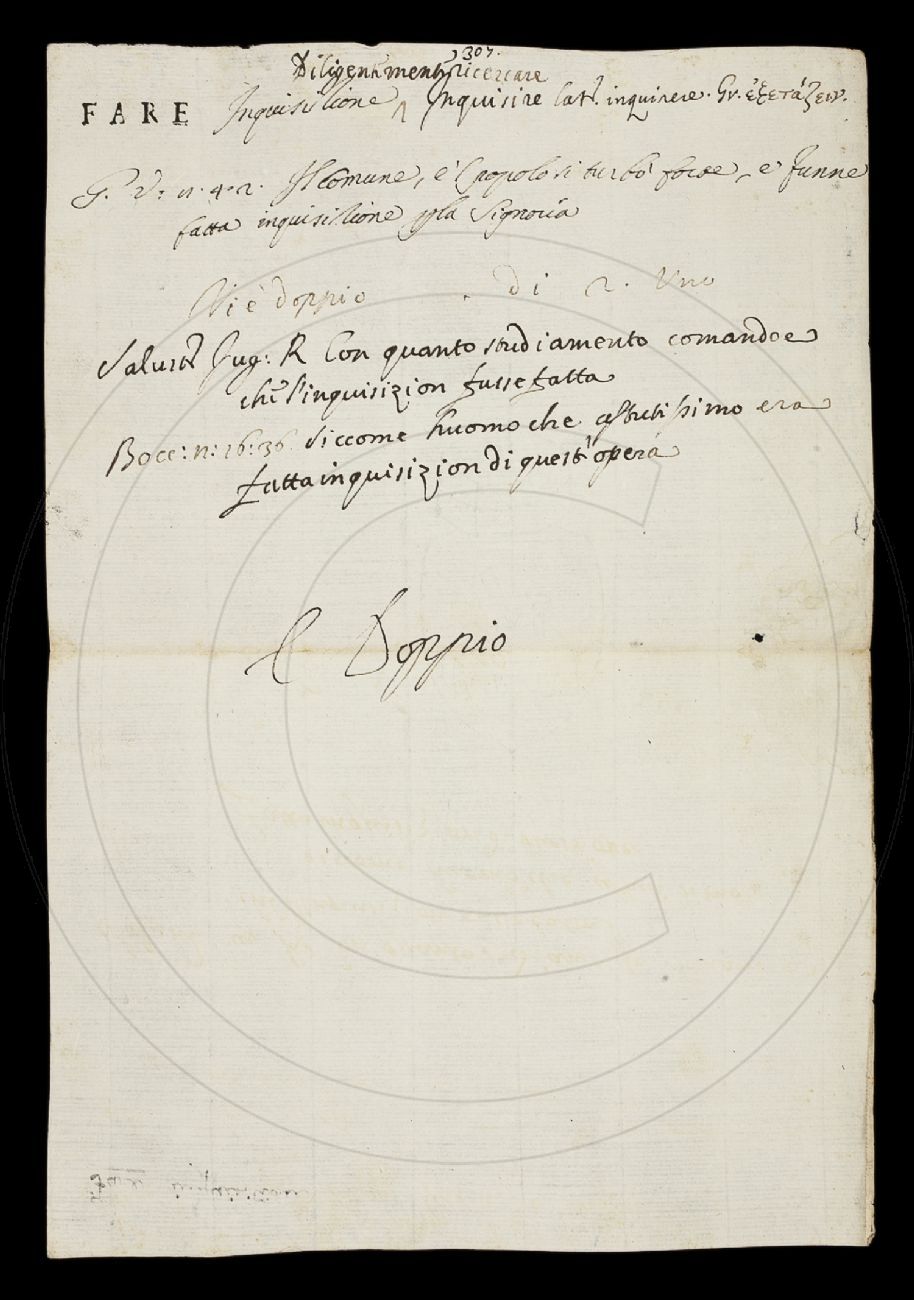 307.
Diligentemente ricercare
FARE Inquisizione Inquisire Lat. inquirere. Gr. ἐξετάζειν.
G. V. 11. 4. 2. Il comune, e'l popolo si turbò forte, e funne
fatta inquisizione p la Signoria
Vi è doppio di 2. Uno
Salust. Jug: R. Con quanto studiamento comandoe
che l'inquisizion fusse fatta
Bocc: n: 16: 36. Siccome huomo che astutissimo era
fatta inquisizion di quest'opera
È Doppio